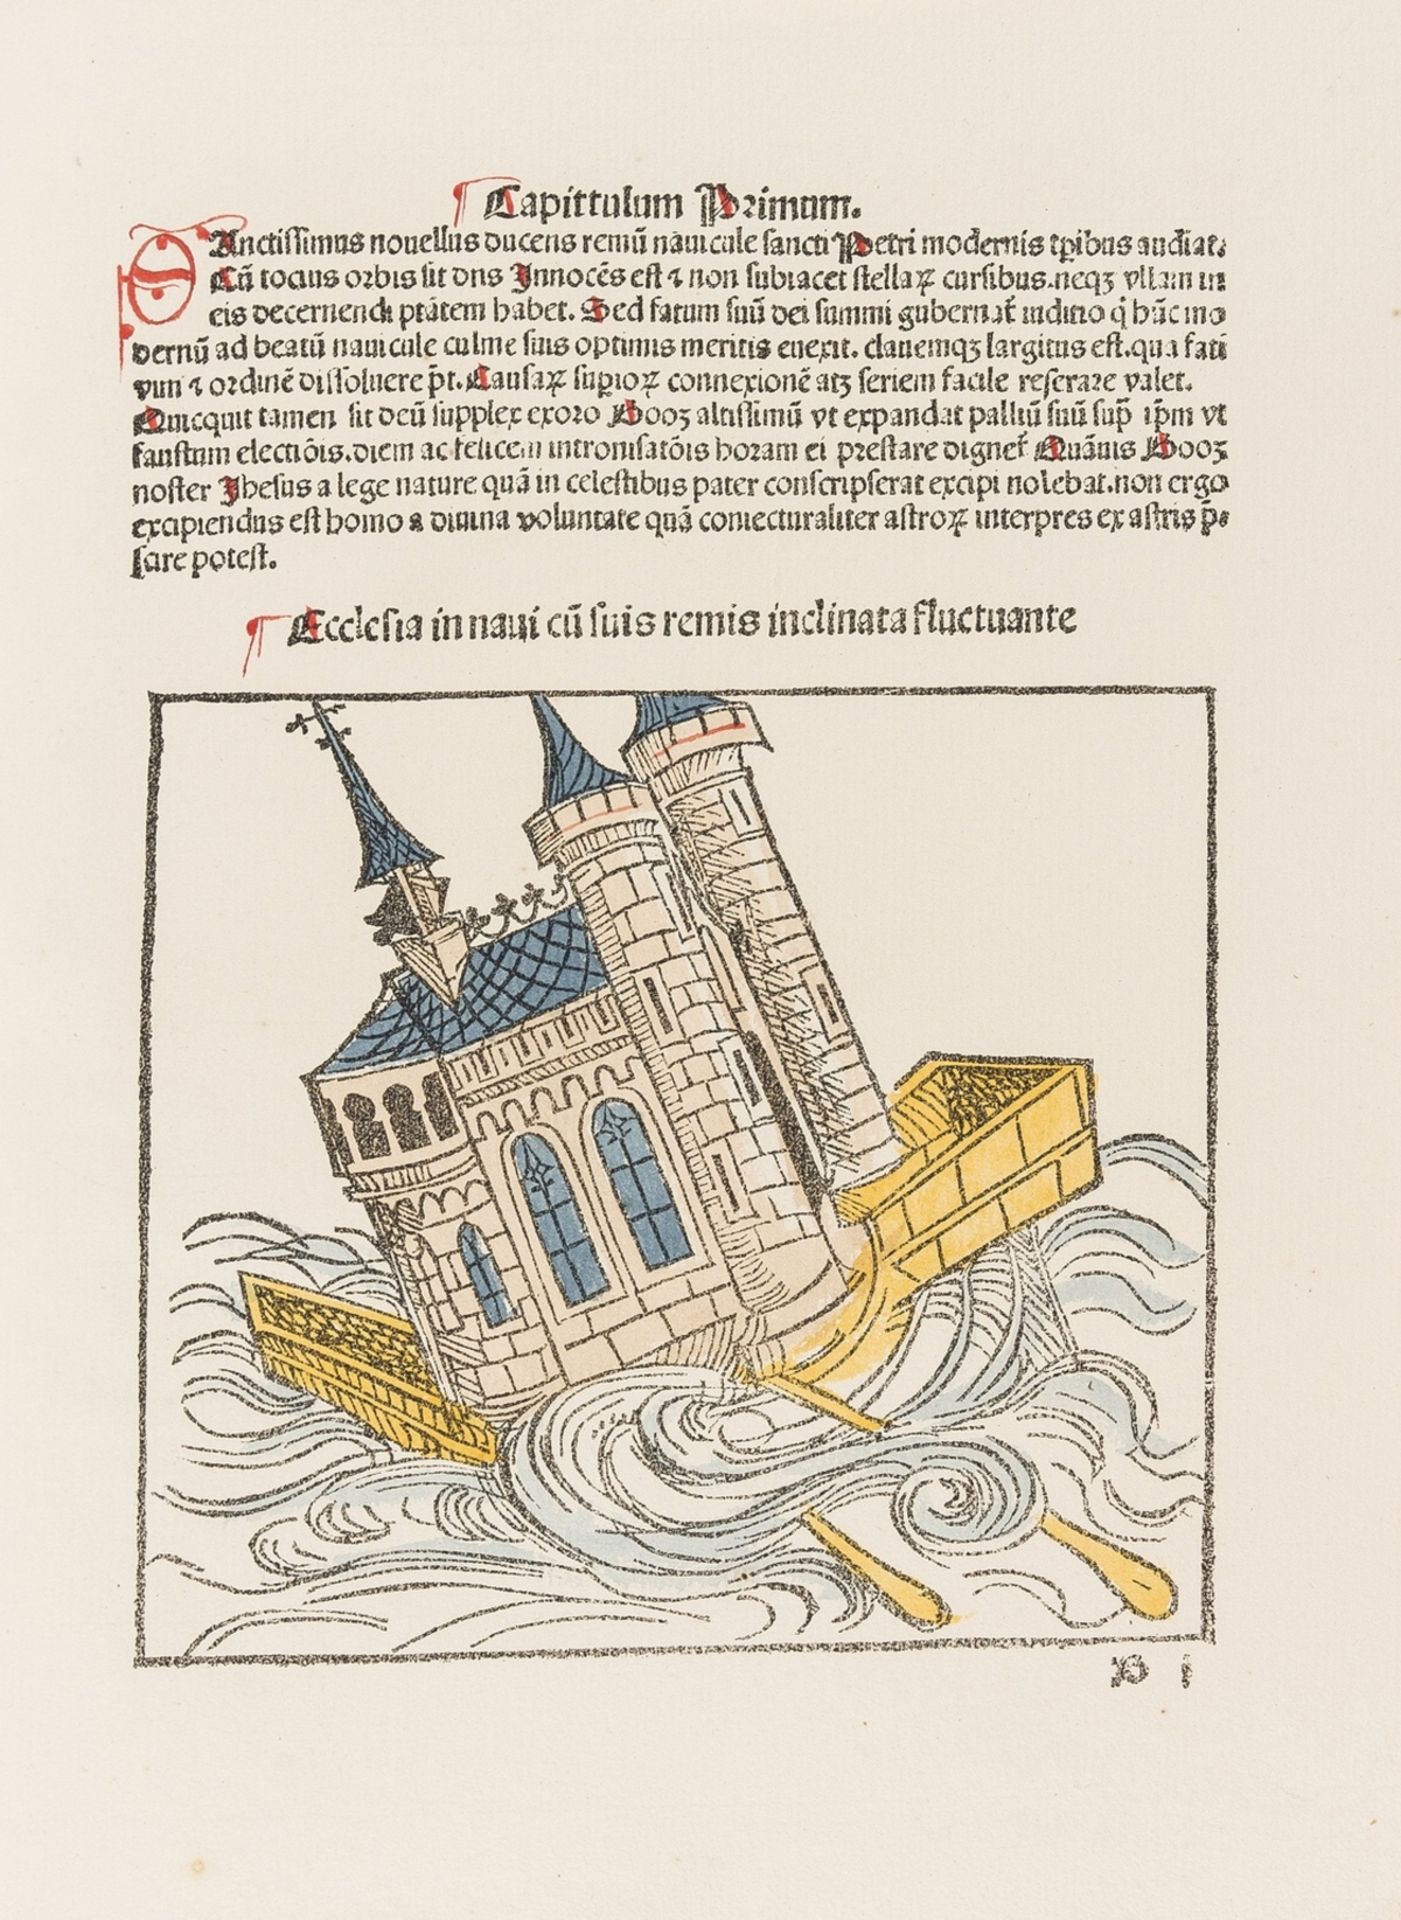 Capittulum Primum.
SAnctissimus nouellus ducens remū nauicule sancti Petri modernis tꝑibus audiat.
Cū tocius orbis sit dns Innocēs est ⁊ non subiacet stellaꝝ cursibus.neqꝫ vllam in
eis decernendi ptātem habet. Sed fatum suū dei summi gubernat᷑ inditio q̇ hūc mo
dernū ad beatū nauicule culme suis optimis meritis euexit. clauemqꝫ largitus est.qua fati
vim ⁊ ordinē dissoluere p̄t. Causaꝝ suꝑioꝝ connexionē atꝫ seriem facile reserare valet.
Quicquit tamen sit deū supplex exoro Booꝫ altissimū vt expandat palliū suū sup̄ ip̄m vt
faustum electiōis.diem ac felicem intronisatōis horam ei prestare dignet᷑ Quāuis Booꝫ
noster Jhesus a lege nature quā in celestibus pater conscripserat excipi nolebat.non ergo
excipiendus est homo a diuina voluntate quā coniecturaliter astroꝝ interpres ex astris p̄.
scire potest.
Ecclesia in naui cū suis remis inclinata fluctuante
B i